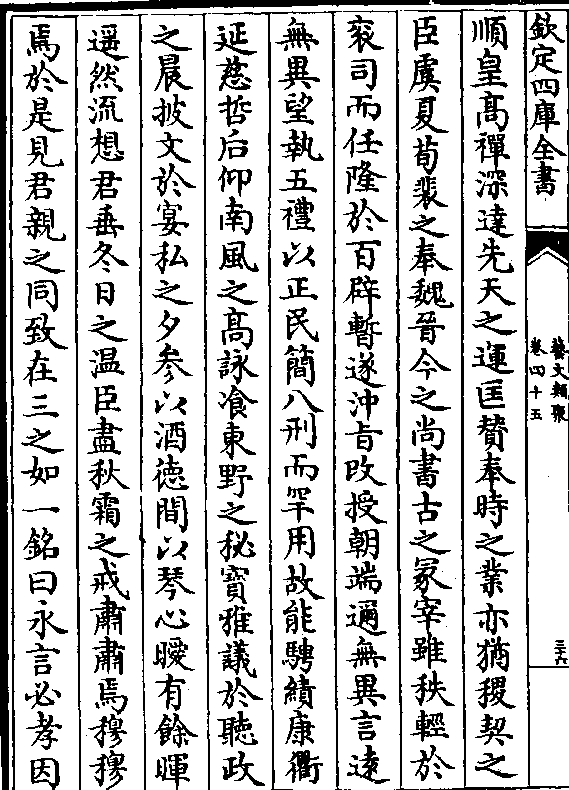 欽定四庫全書
藝文類聚
卷四十五
三十六
順皇高禪深達先天之運匡賛奉時之業亦猶稷契之
臣虞夏荀裴之奉魏晉今之尚書古之冢宰雖秩輕於
衮司而任隆於百辟暫遂沖旨改授朝端邇無異言逺
無異望執五禮以正民簡八刑而罕用故能騁績康衢
延慈哲后仰南風之高詠飡東野之秘寳雅議於聽政
之晨披文於宴私之夕參以酒徳間以琴心曖有餘暉
遥然流想君垂冬日之温臣盡秋霜之戒肅肅焉穆穆
焉於是見君親之同致在三之如一銘曰永言必孝因